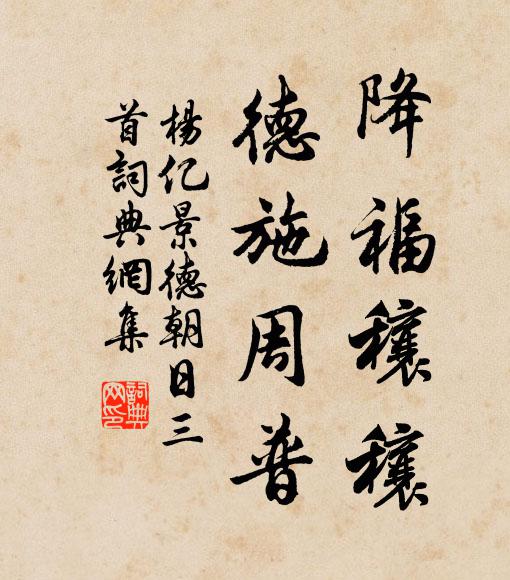 降福穰穰
德施周普
楊亿景德朝日三
首詞典網集
詞典
网印